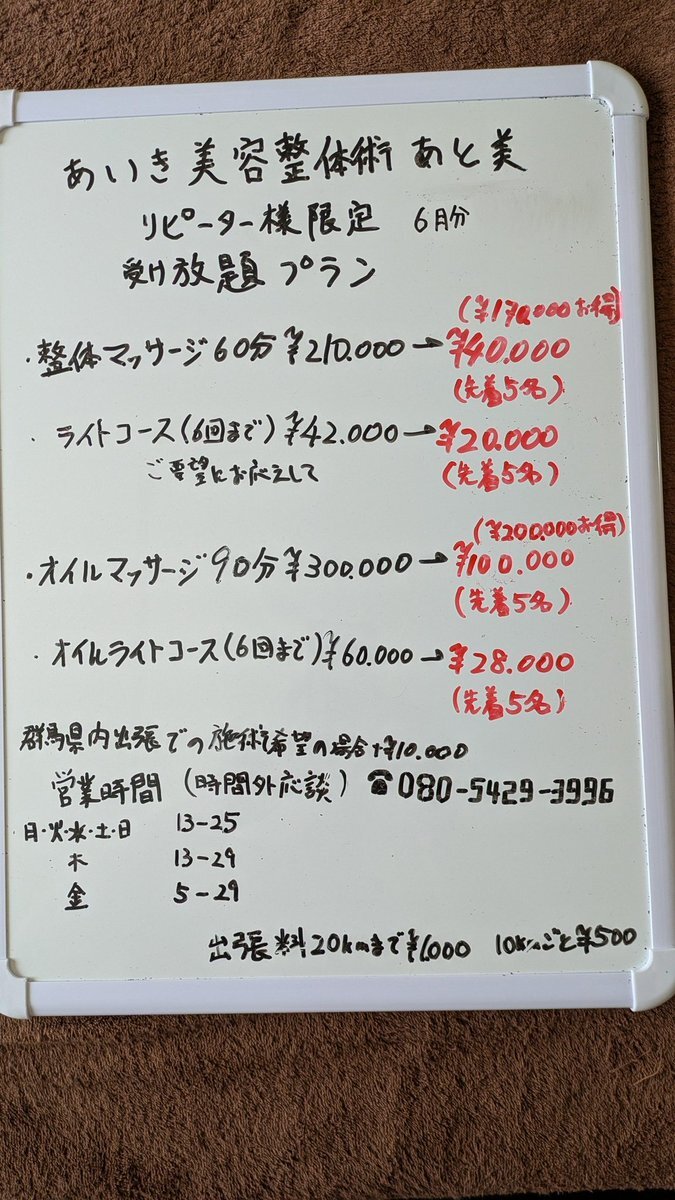 あいき美容整体術 あと美
リピーター様限定 6月分
受け放題プラン
(¥170,000お得)
・整体マッサージ60分 ¥210.000→¥40.000
(先着5名)
・ライトコース(6回まで)¥42.000→¥20.000
ご要望にお応えして
(先着5名)
(¥200.000お得)
・オイルマッサージ90分¥300.000→¥100.000
(先着5名)
・オイルライトコース(6回まで)¥60.000→¥28.000
(先着5名)
群馬県内出張での施術を希望の場合+¥10.000
営業時間 (時間外応談) ☎080-5429-3996
日・火・水・土・日 13-25
木 13-29
金 5-29
出張料20kmまで¥1,000 10kmごと¥500